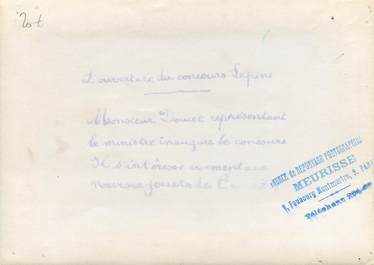 L'ouverture du concours Lépine
Monsieur Doucet représentant
le ministre inaugure le concours
Il s'intéresse
nouveaux jouets de
AGENCE de REPORTAGE PHOTOGRAPHIQUE
MEURISSE
Faubourg Montmartre, PARIS